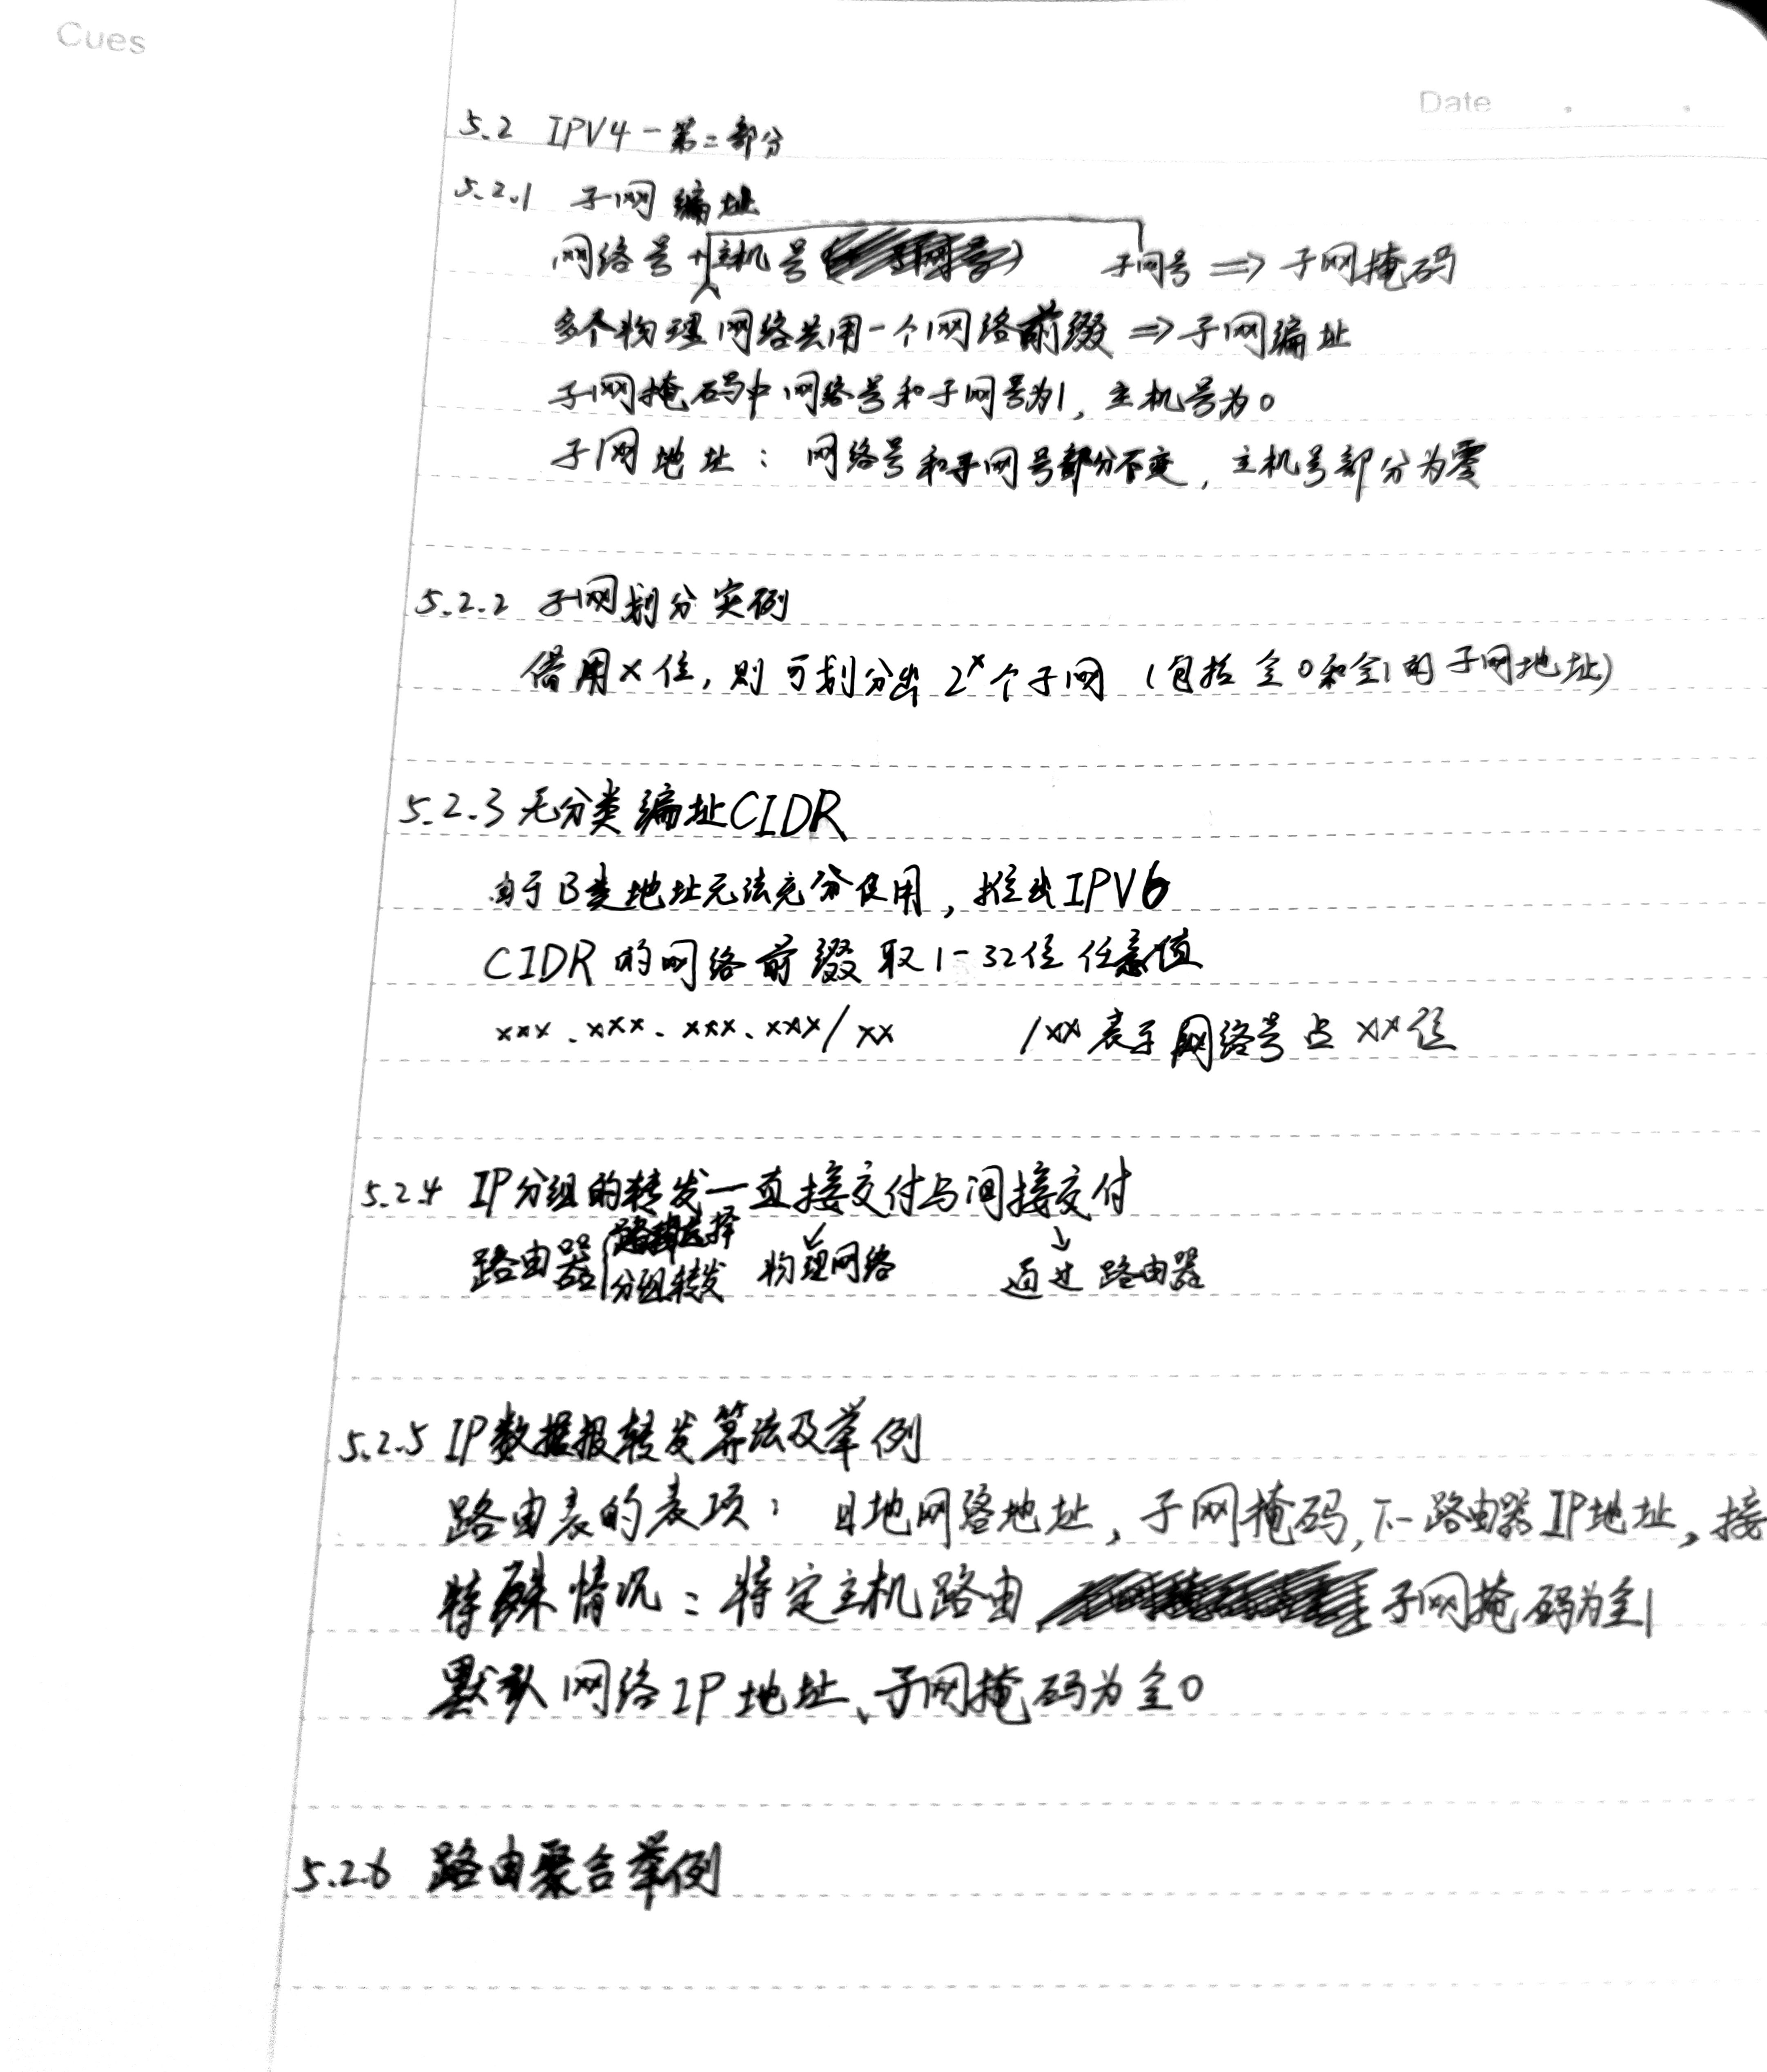 Cues
Date
5.2 IPV4-第二部分
5.2.1 子网编址
网络号+主机号 子网号 => 子网掩码
多个物理网络共用一个网络前缀 => 子网编址
子网掩码中网络号和子网号为1, 主机号为0
子网地址: 网络号和子网号部分不变, 主机号部分为零
5.2.2 子网划分实例
借用x位, 则可划分出 2^x个子网 (包括全0和全1的子网地址)
5.2.3 无分类编址CIDR
由于B类地址无法充分使用, 推出IPV6
CIDR的网络前缀取1-32位任意值
xxx.xxx.xxx.xxx/xx /xx表示网络号占xx位
5.2.4 IP分组的转发—直接交付与间接交付
路由器 { 选择 物理网络 通过路由器
分组转发
5.2.5 IP数据报转发算法及举例
路由表的表项: 目地网络地址, 子网掩码, 下一路由器IP地址, 接
特殊情况: 特定主机路由 子网掩码为全1
默认网络IP地址、子网掩码为全0
5.2.6 路由聚合举例